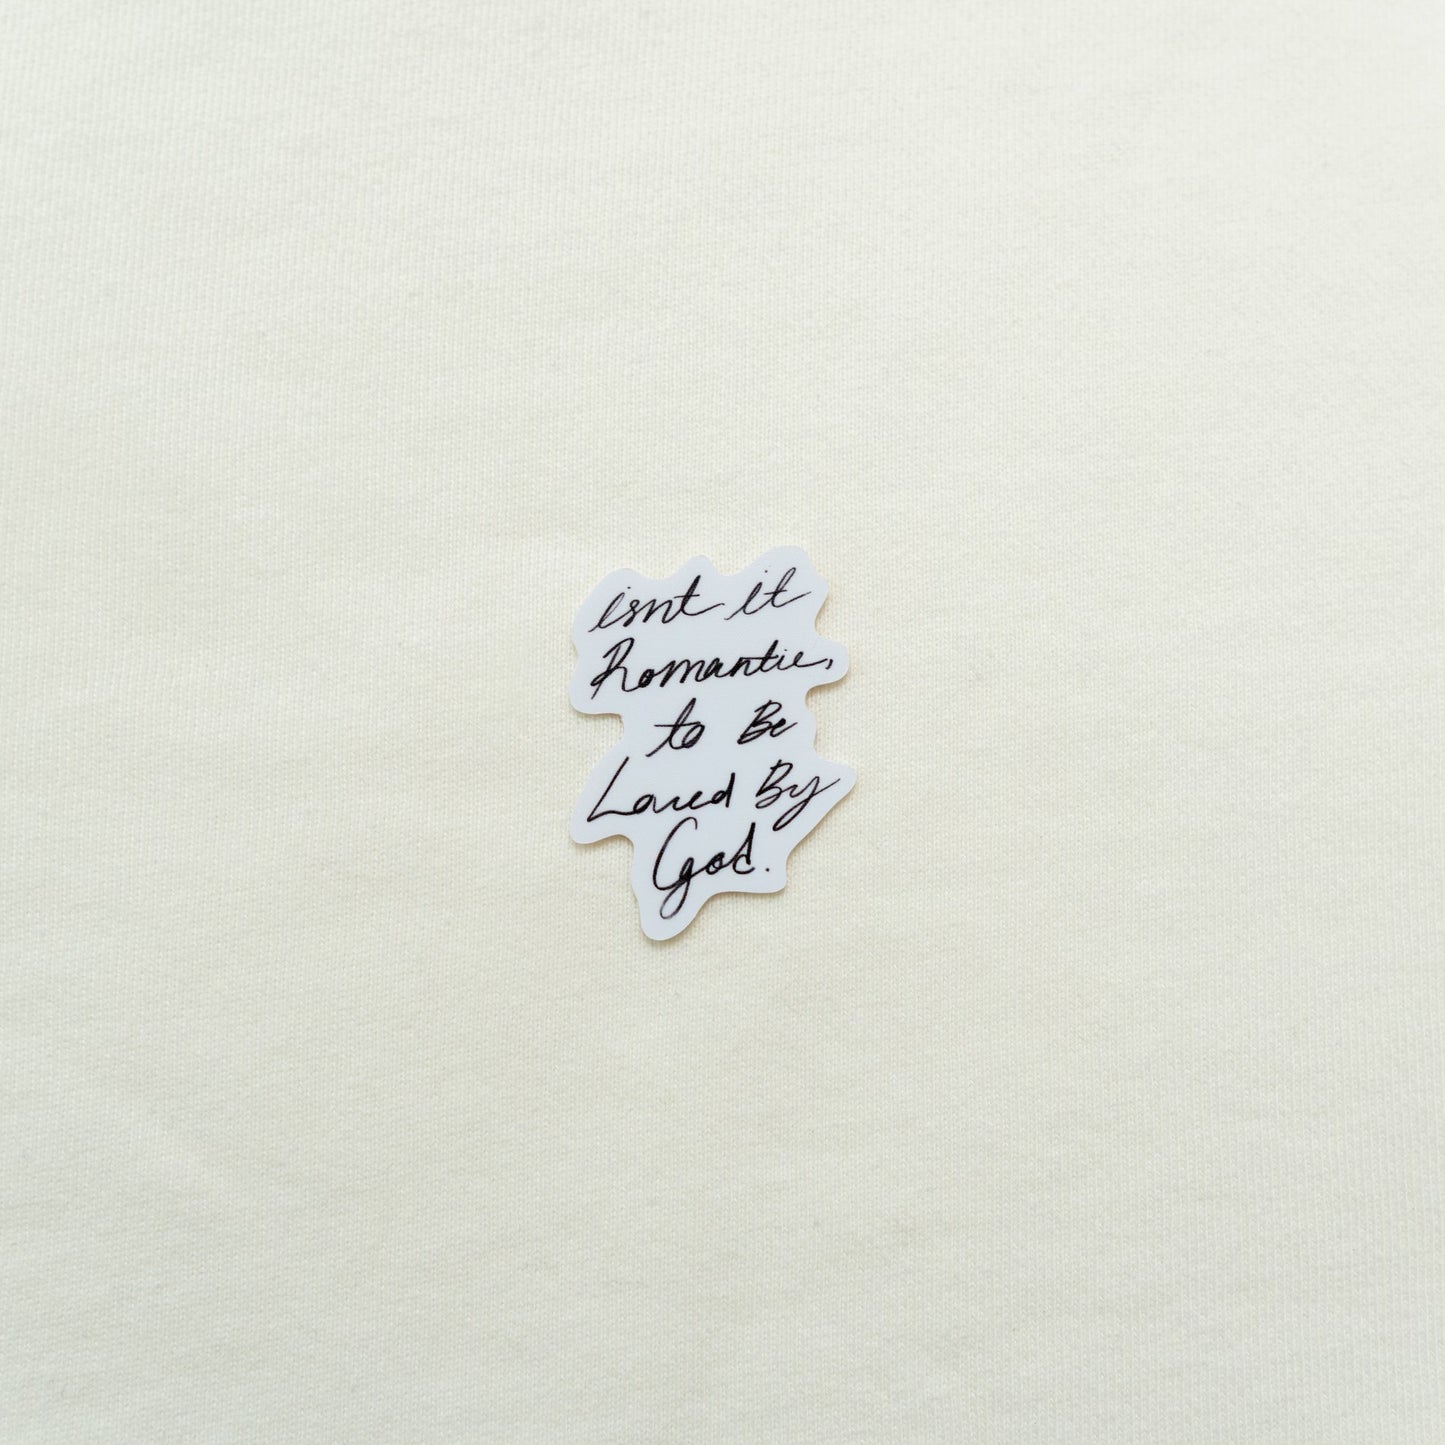 isnt it
Romantic,
to Be
Loved By
God.